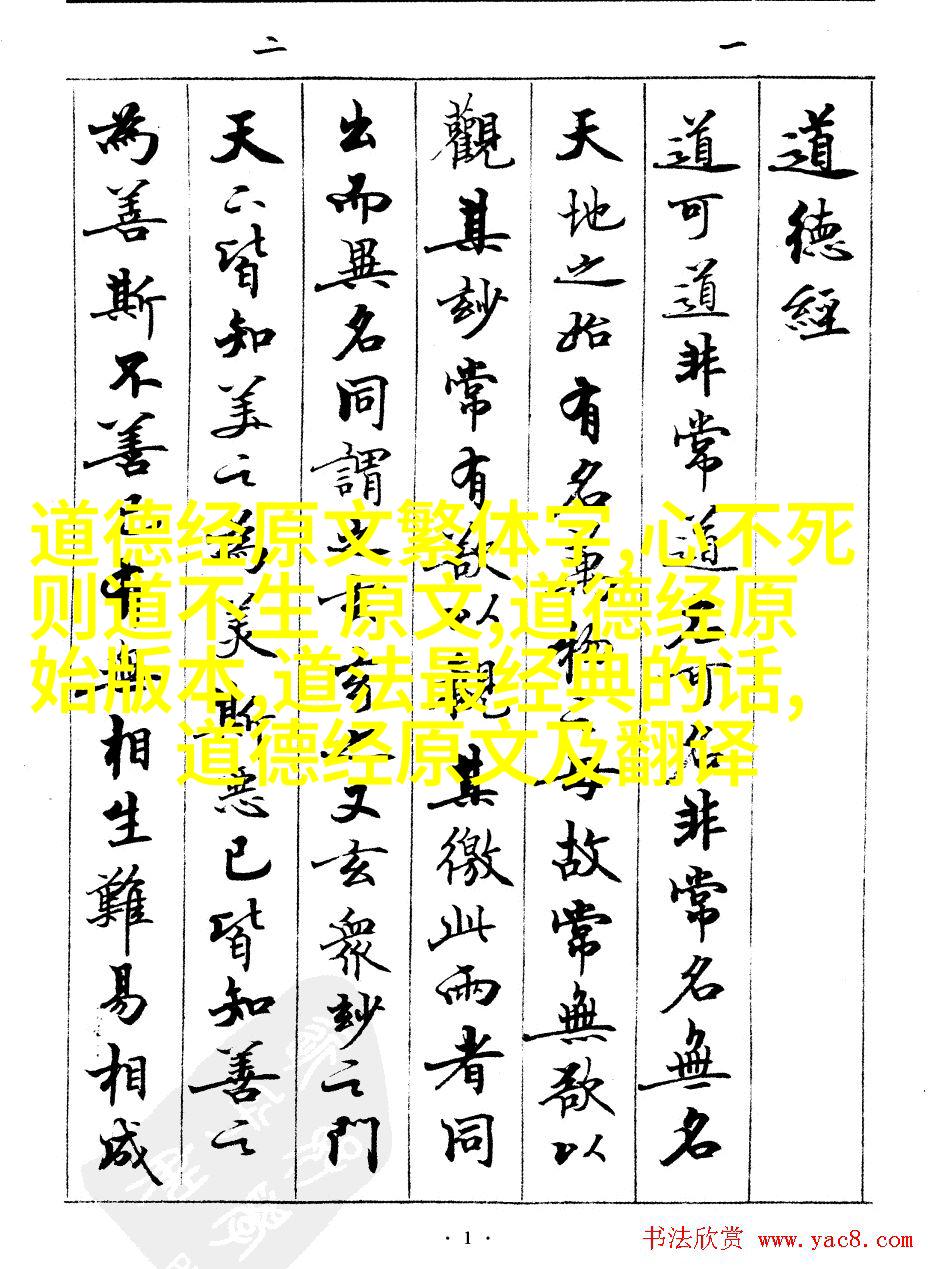 二 一
道德經
道可道非常道名可名非常名無名
天地之始有名萬物之母故常無欲以
觀其玅常有欲以觀其徼此兩者同
出而異名同謂之玄玄之又玄眾玅之門
天下皆知美之為美斯惡已皆知善之
為善斯不善已有無相生難易相成
道德经原文繁体字,心不死
则道不生 原文,道德经原
始版本,道法最经典的话,
道德经原文及翻译
· 1 ·
书法欣赏 www.yac8.com